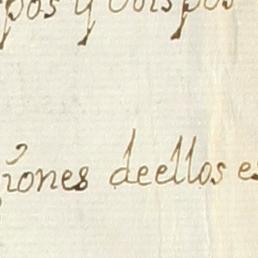 pos y obispos
giones deellos es